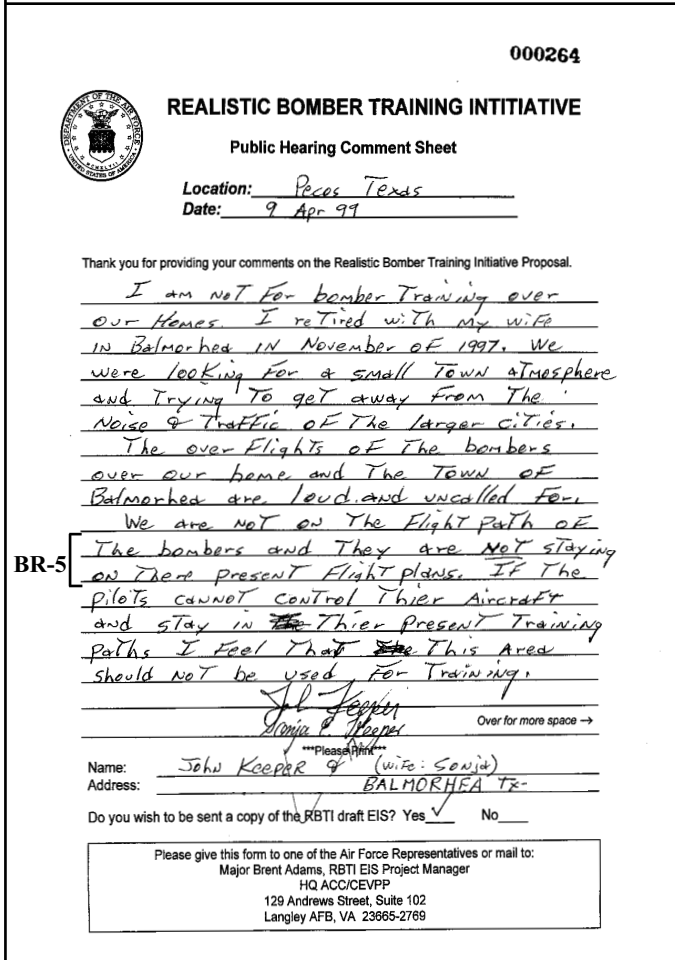 000264
DEPARTMENT OF THE AIR FORCE
MCMXLVII
UNITED STATES OF AMERICA
REALISTIC BOMBER TRAINING INTITIATIVE
Public Hearing Comment Sheet
Location: Pecos Texas
Date: 9 Apr 99
Thank you for providing your comments on the Realistic Bomber Training Initiative Proposal.
I am NOT For bomber Training over
our Homes. I reTired wiTh my wiFe
IN Balmorhea IN November of 1997. We
were looking For a small Town aTmosphere
and Trying To geT away From The
Noise & TraFFic oF The larger ciTies.
The over FlighTs oF The bombers
over our home and The Town oF
Balmorhea are loud and uncalled For.
We are NOT on The FlighT PaTh oF
BR-5
The bombers and They are NOT sTaying
on There presenT FlighT plans. IF The
piloTs canNOT conTrol Thier AircraFT
and sTay in Thier PresenT Training
PaThs I Feel ThaT This Area
should NoT be used For Training.
John Keeper
Sonja E. Keeper
Over for more space →
***Please Print***
Name: John Keeper & (wiFe: Sonja)
Address: BALMORHEA Tx-
Do you wish to be sent a copy of the RBTI draft EIS? Yes ✓ No
Please give this form to one of the Air Force Representatives or mail to:
Major Brent Adams, RBTI EIS Project Manager
HQ ACC/CEVPP
129 Andrews Street, Suite 102
Langley AFB, VA 23665-2769